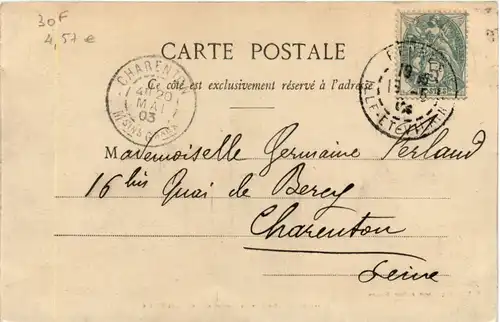 30F
4,57 €
CARTE POSTALE
Ce côté est exclusivement réservé à l'adresse
CHARENTON
MAI
03
Mademoiselle Germaine Perland
16 bis Quai de Bercy
Charenton
Seine